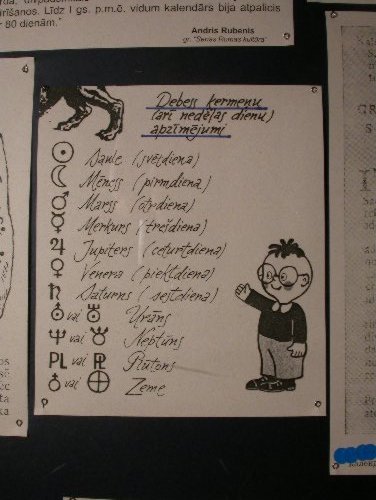 rīšanos. Līdz I gs. p.m.ē. vidum kalendārs bija atpalicis
80 dienām."
Andris Rubenis
gr. "Senās Romas kultūra"
Debess ķermeņu
(arī nedēļas dienu)
apzīmējumi
☉ Saule (svētdiena)
☾ Mēness (pirmdiena)
♂ Marss (otrdiena)
☿ Merkurs (trešdiena)
♃ Jupiters (ceturtdiena)
♀ Venēra (piektdiena)
♄ Saturns (sestdiena)
⛢ vai ♅ Urāns
♆ vai Neptūns
PL vai ♇ Plutons
♁ vai ⊕ Zeme